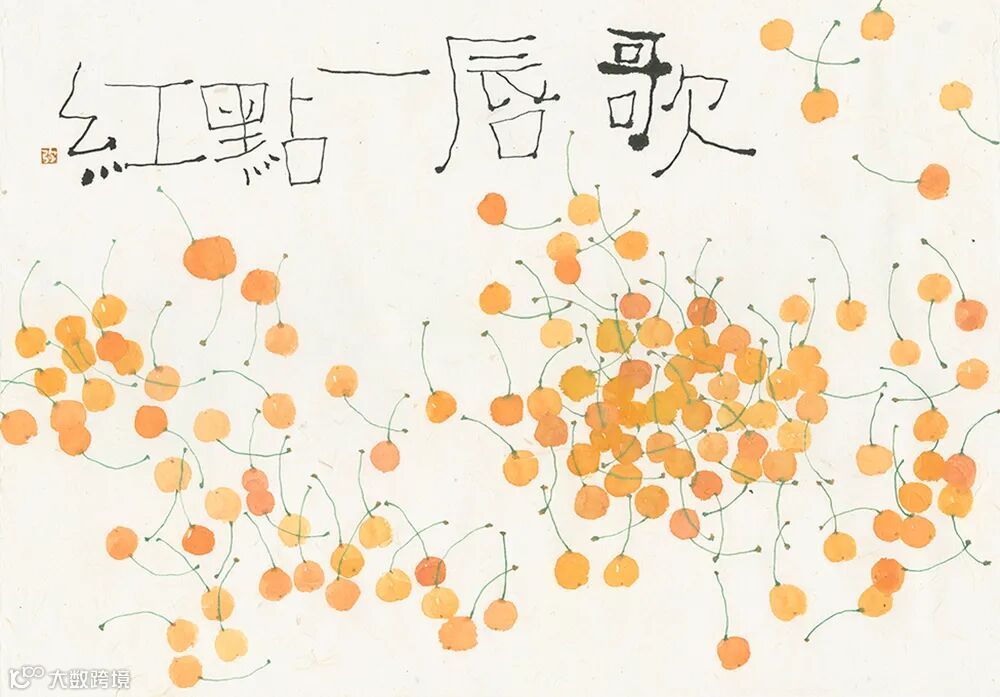 歌唇一點紅
大数跨境